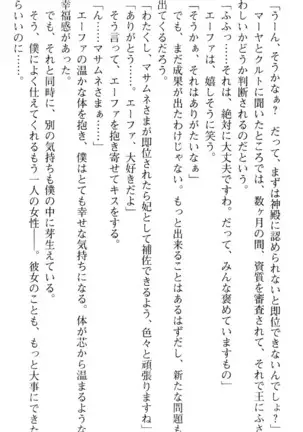 「うーん、そうかなぁ？　だって、まずは神殿に認められないと即位できないんでしょ？」
マーヤとクルトに聞いたところでは、数ヶ月の間、資質を審査されて、それで王にふさ
わしいかどうか判断されるのだという。
「ふふっ……それは、絶対に大丈夫ですわ。だって、みんな褒めていますもの」
エーファは、嬉しそうに笑う。
「そうかぁ。それはありがたいなぁ」
でも、まだ成果が出たわけじゃない。もっと出来ることはあるはずだし、新たな問題も
出てくるだろう。
「わたくし、マサムネさまが即位されたら妃として補佐できるよう、色々と頑張りますね」
「ありがとう……。エーファ、大好きだよ」
そう言って、エーファを抱き寄せてキスをする。
「ん……マサムネさまぁ……」
エーファの温かな体を抱き、僕はとても幸せな気持ちになる。体が芯から温まるような
幸福感があった。
でも、それと同時に、別の気持ちも僕の中に芽生えている。
そう、僕によく仕えてくれるもう一人の女性――。彼女のことも、もっと大事にできた
らいいのに……。